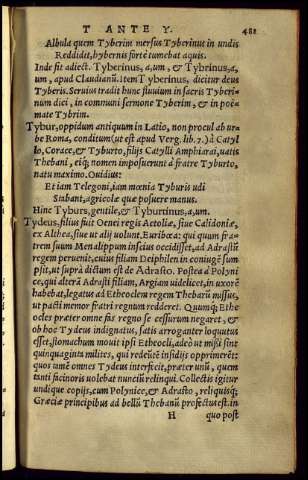 T ANTE Y. 481
Albula quem Tyberim mersus Tyberinus in undis
Reddidit, hybernis forte tumebat aquis.
Inde fit adiect. Tyberinus, a, um, & Tybrinus, a,
um, apud Claudianū. Item Tyberinus, dicitur deus
Tyberis. Seruius tradit hunc fluuium in sacris Tyberi-
num dici, in communi sermone Tyberim, & in poë-
mate Tybrim.
Tybur, oppidum antiquum in Latio, non procul ab ur-
be Roma, conditum (ut est apud Verg. lib. 7.) à Catyl
lo, Corace, & Tyburto, filijs Catylli Amphiarai, uatis
Thebani, eiq; nomen imposuerunt à fratre Tyburto,
natu maximo. Ouidius:
Et iam Telegoni, iam mœnia Tyburis udi
Stabant, agricolæ quæ posuere manus.
Hinc Tyburs, gentile, & Tyburtinus, a, um.
Tydeus, filius fuit Oenei regis Aetoliæ, siue Calidoniæ,
ex Althea, siue ut alij uolunt. Euribœa: qui quum fra-
trem suum Menalippum inscius occidisset, ad Adrastū
regem peruenit, cuius filiam Deiphilen in coniugē sum
psit, ut suprà dictum est de Adrasto. Postea à Polyni
ce, qui alterā Adrasti filiam, Argiam uidelicet, in uxorē
habebat, legatus ad Etheoclem regem Thebarū missus,
ut pacti memor fratri regnum redderet. Quumq; Ethe
ocles præter omne fas regno se cessurum negaret, &
ob hoc Tydeus indignatus, satis arroganter loquutus
esset, stomachum mouit ipsi Etheocli, adeò ut missi sint
quinquaginta milites, qui redeūtē insidijs opprimerēt:
quos tamē omnes Tydeus interfecit, præter unū, quem
tanti facinoris uolebat nuncium relinqui. Collectis igitur
undique copijs, cum Polynice, & Adrasto, reliquisq;
Græciæ principibus ad bellū Thebanū profectus est. in
H quo post